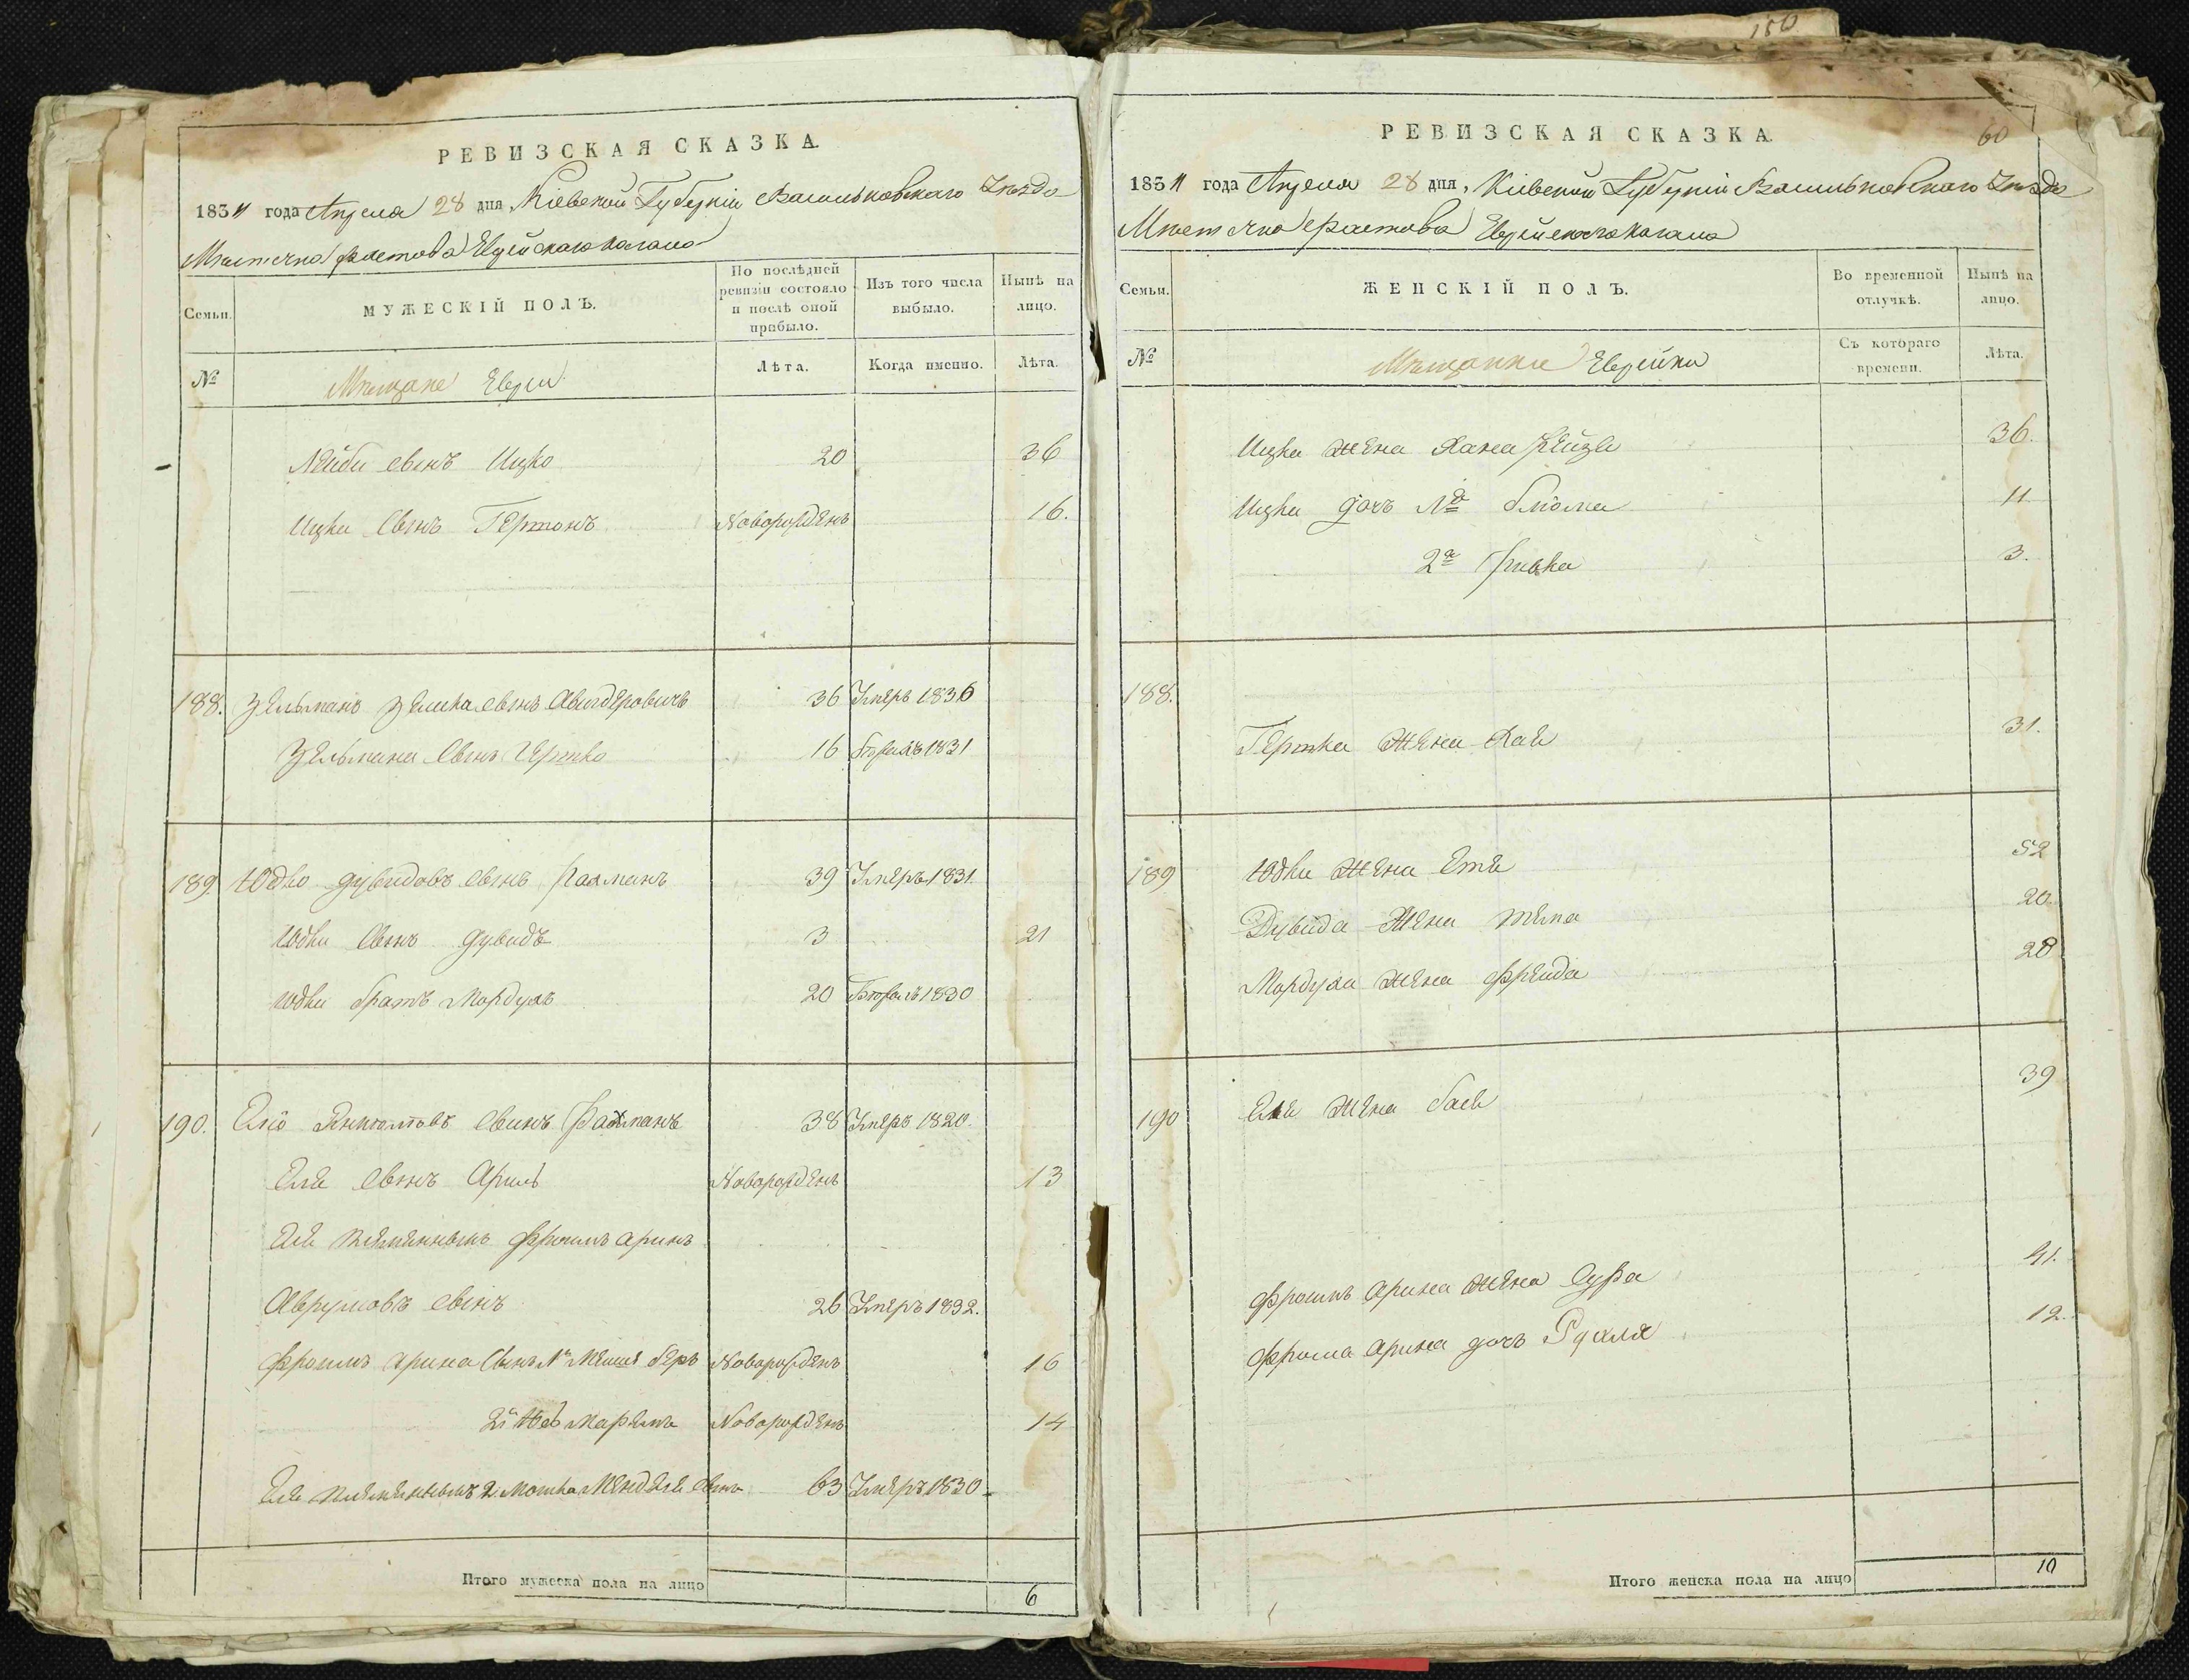 180
РЕВИЗСКАЯ СКАЗКА.
1834 года Апреля 28 дня, Кіевской Губерніи Васильковскаго Уезда
Местечка Фастова Еврейскаго Кагала
Семьи.
МУЖЕСКІЙ ПОЛЪ.
По послѣдней ревизіи состояло и послѣ оной прибыло.
Изъ того числа выбыло.
Нынѣ на лицо.
№
Мещане Евреи
Лѣта.
Когда именно.
Лѣта.
Лейби сынъ Ицко 20 36
Ицки сынъ Гершонъ Новорожденъ 16.
188. Зельманъ Зелика сынъ Авигдеровичъ 36 Умеръ 1836
Зельмана сынъ Гершко 16 1831
189. Юдко Дувидовъ сынъ Рахманъ 39 Умеръ 1831.
Юдки сынъ Дувидъ 3 21
Юдки братъ Мордухъ 20 1830
190. Еліо сынъ Рахманъ 38 Умеръ 1820.
Еля сынъ Арилъ Новорожденъ 13
Еля племянникъ Фроимъ Аринъ
Аврумовъ сынъ 26 Умеръ 1832.
Фроимъ Арина сынъ Беръ Новорожденъ 16
2й Новорожденъ 14
Еля племянникъ 2. Мошка Менделя сынъ 63 Умеръ 1830
Итого мужеска пола на лицо 6
60
РЕВИЗСКАЯ СКАЗКА.
1834 года Апреля 28 дня, Кіевской Губерніи Васильковскаго Уезда
Местечка Фастова Еврейскаго Кагала
Семьи.
ЖЕНСКІЙ ПОЛЪ.
Во временной отлучкѣ.
Нынѣ на лицо.
№
Мещанки Еврейки
Съ котораго времени.
Лѣта.
Ицки жена Хана Рейзя 36.
Ицки дочь Блюма 11
2я Ривка 3.
188.
Гершка жена Хая 31.
189 Юдки жена Етя 52
Дувида жена 20.
Мордуха жена Фрейда 28
190 Еля жена Бася 39
Фроимъ Арина жена Сура 41.
Фроима Арина дочь Рухля 12.
Итого женска пола на лицо 10